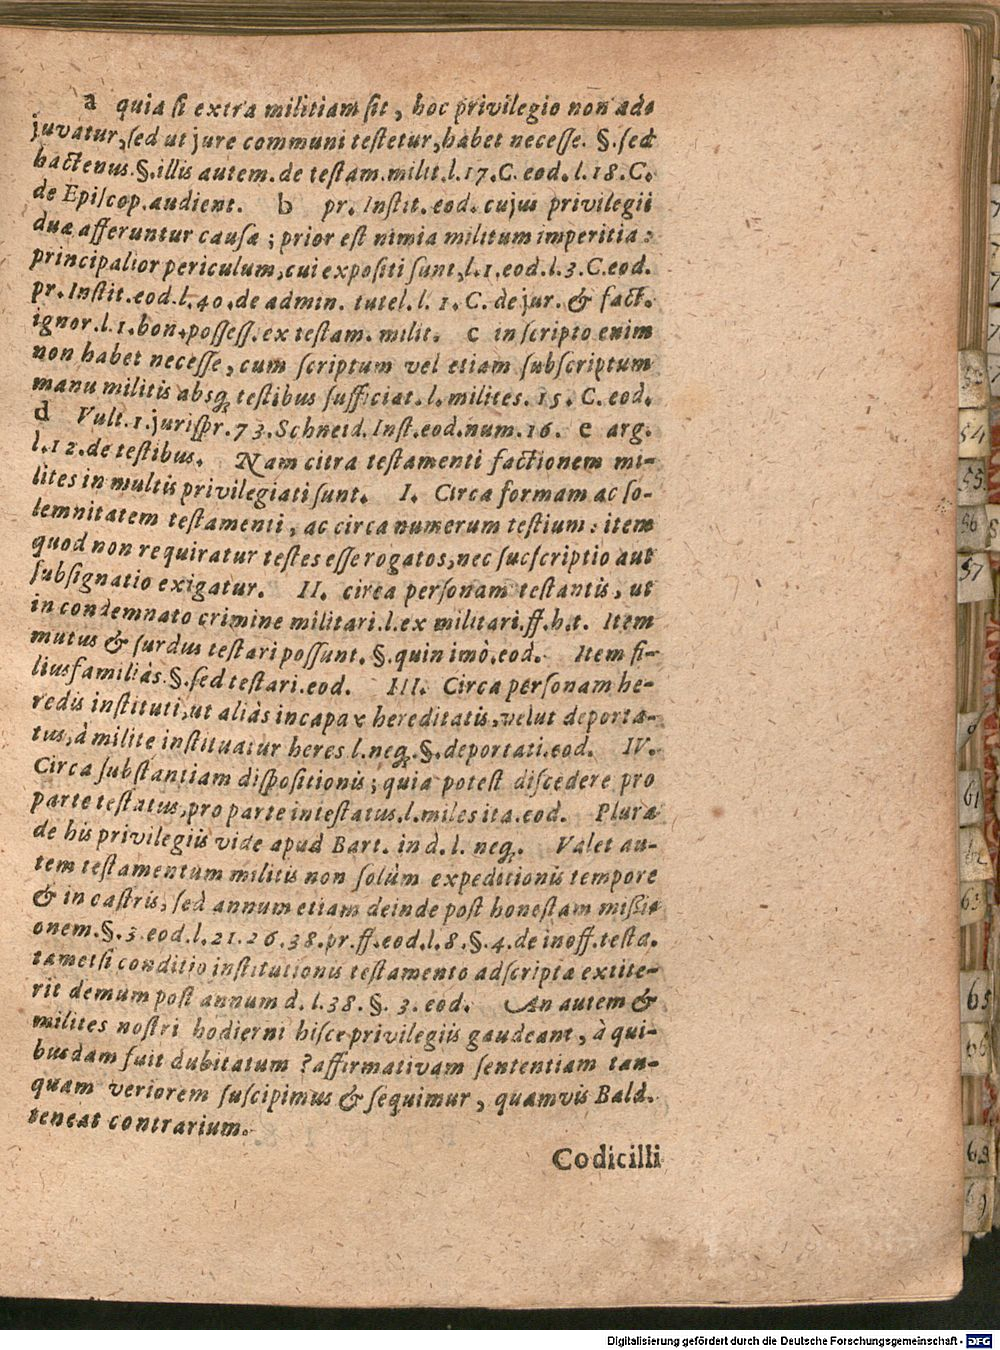 a quia si extra militiam sit, hoc privilegio non ad-
juvatur, sed ut jure communi testetur, habet necesse. §. sed
hactenus. §. illis autem. de testam. milit. l. 17. C. eod. l. 18. C.
de Episcop. audient. b pr. Instit. eod. cujus privilegii
duæ afferuntur causæ; prior est nimia militum imperitia:
principalior periculum, cui expositi sunt, l. 1. eod. l. 3. C. eod.
pr. Instit. eod. l. 40. de admin. tutel. l. 1. C. de jur. & fact.
ignor. l. 1. bon. possess. ex testam. milit. c in scripto enim
non habet necesse, cum scriptum vel etiam subscriptum
manu militis absq; testibus sufficiat. l. milites. 15. C. eod.
d Vult. 1. jurispr. 73. Schneid. Inst. eod. num. 16. e arg.
l. 12. de testibus. Nam citra testamenti factionem mi-
lites in multis privilegiati sunt. I. Circa formam ac so-
lemnitatem testamenti, ac circa numerum testium: item
quod non requiratur testes esse rogatos, nec sucscriptio aut
subsignatio exigatur. II. circa personam testantis, ut
in condemnato crimine militari. l. ex militari. ff. h. t. Item
mutus & surdus testari possunt. §. quin imò. eod. Item fi-
liusfamiliàs. §. sed testari. eod. III. Circa personam he-
redis instituti, ut aliàs incapax hereditatis, velut deporta-
tus, à milite instituatur heres l. neq; §. deportati. eod. IV.
Circa substantiam dispositionis; quia potest discedere pro
parte testatus, pro parte intestatus. l. miles ita. eod. Plura
de his privilegiis vide apud Bart. in d. l. neq;. Valet au-
tem testamentum militis non solùm expeditionis tempore
& in castris, sed annum etiam deinde post honestam missi-
onem. §. 3. eod. l. 21. 26. 38. pr. ff. eod. l. 8. §. 4. de inoff. testa.
tametsi conditio institutionis testamento adscripta extite-
rit demum post annum d. l. 38. §. 3. eod. An autem &
milites nostri hodierni hisce privilegiis gaudeant, à qui-
busdam fuit dubitatum? affirmativam sententiam tan-
quam veriorem suscipimus & sequimur, quamvis Bald.
teneat contrarium.
Codicilli
54
55
56
57
61
62
63
65
66
69
Digitalisierung gefördert durch die Deutsche Forschungsgemeinschaft - DFG